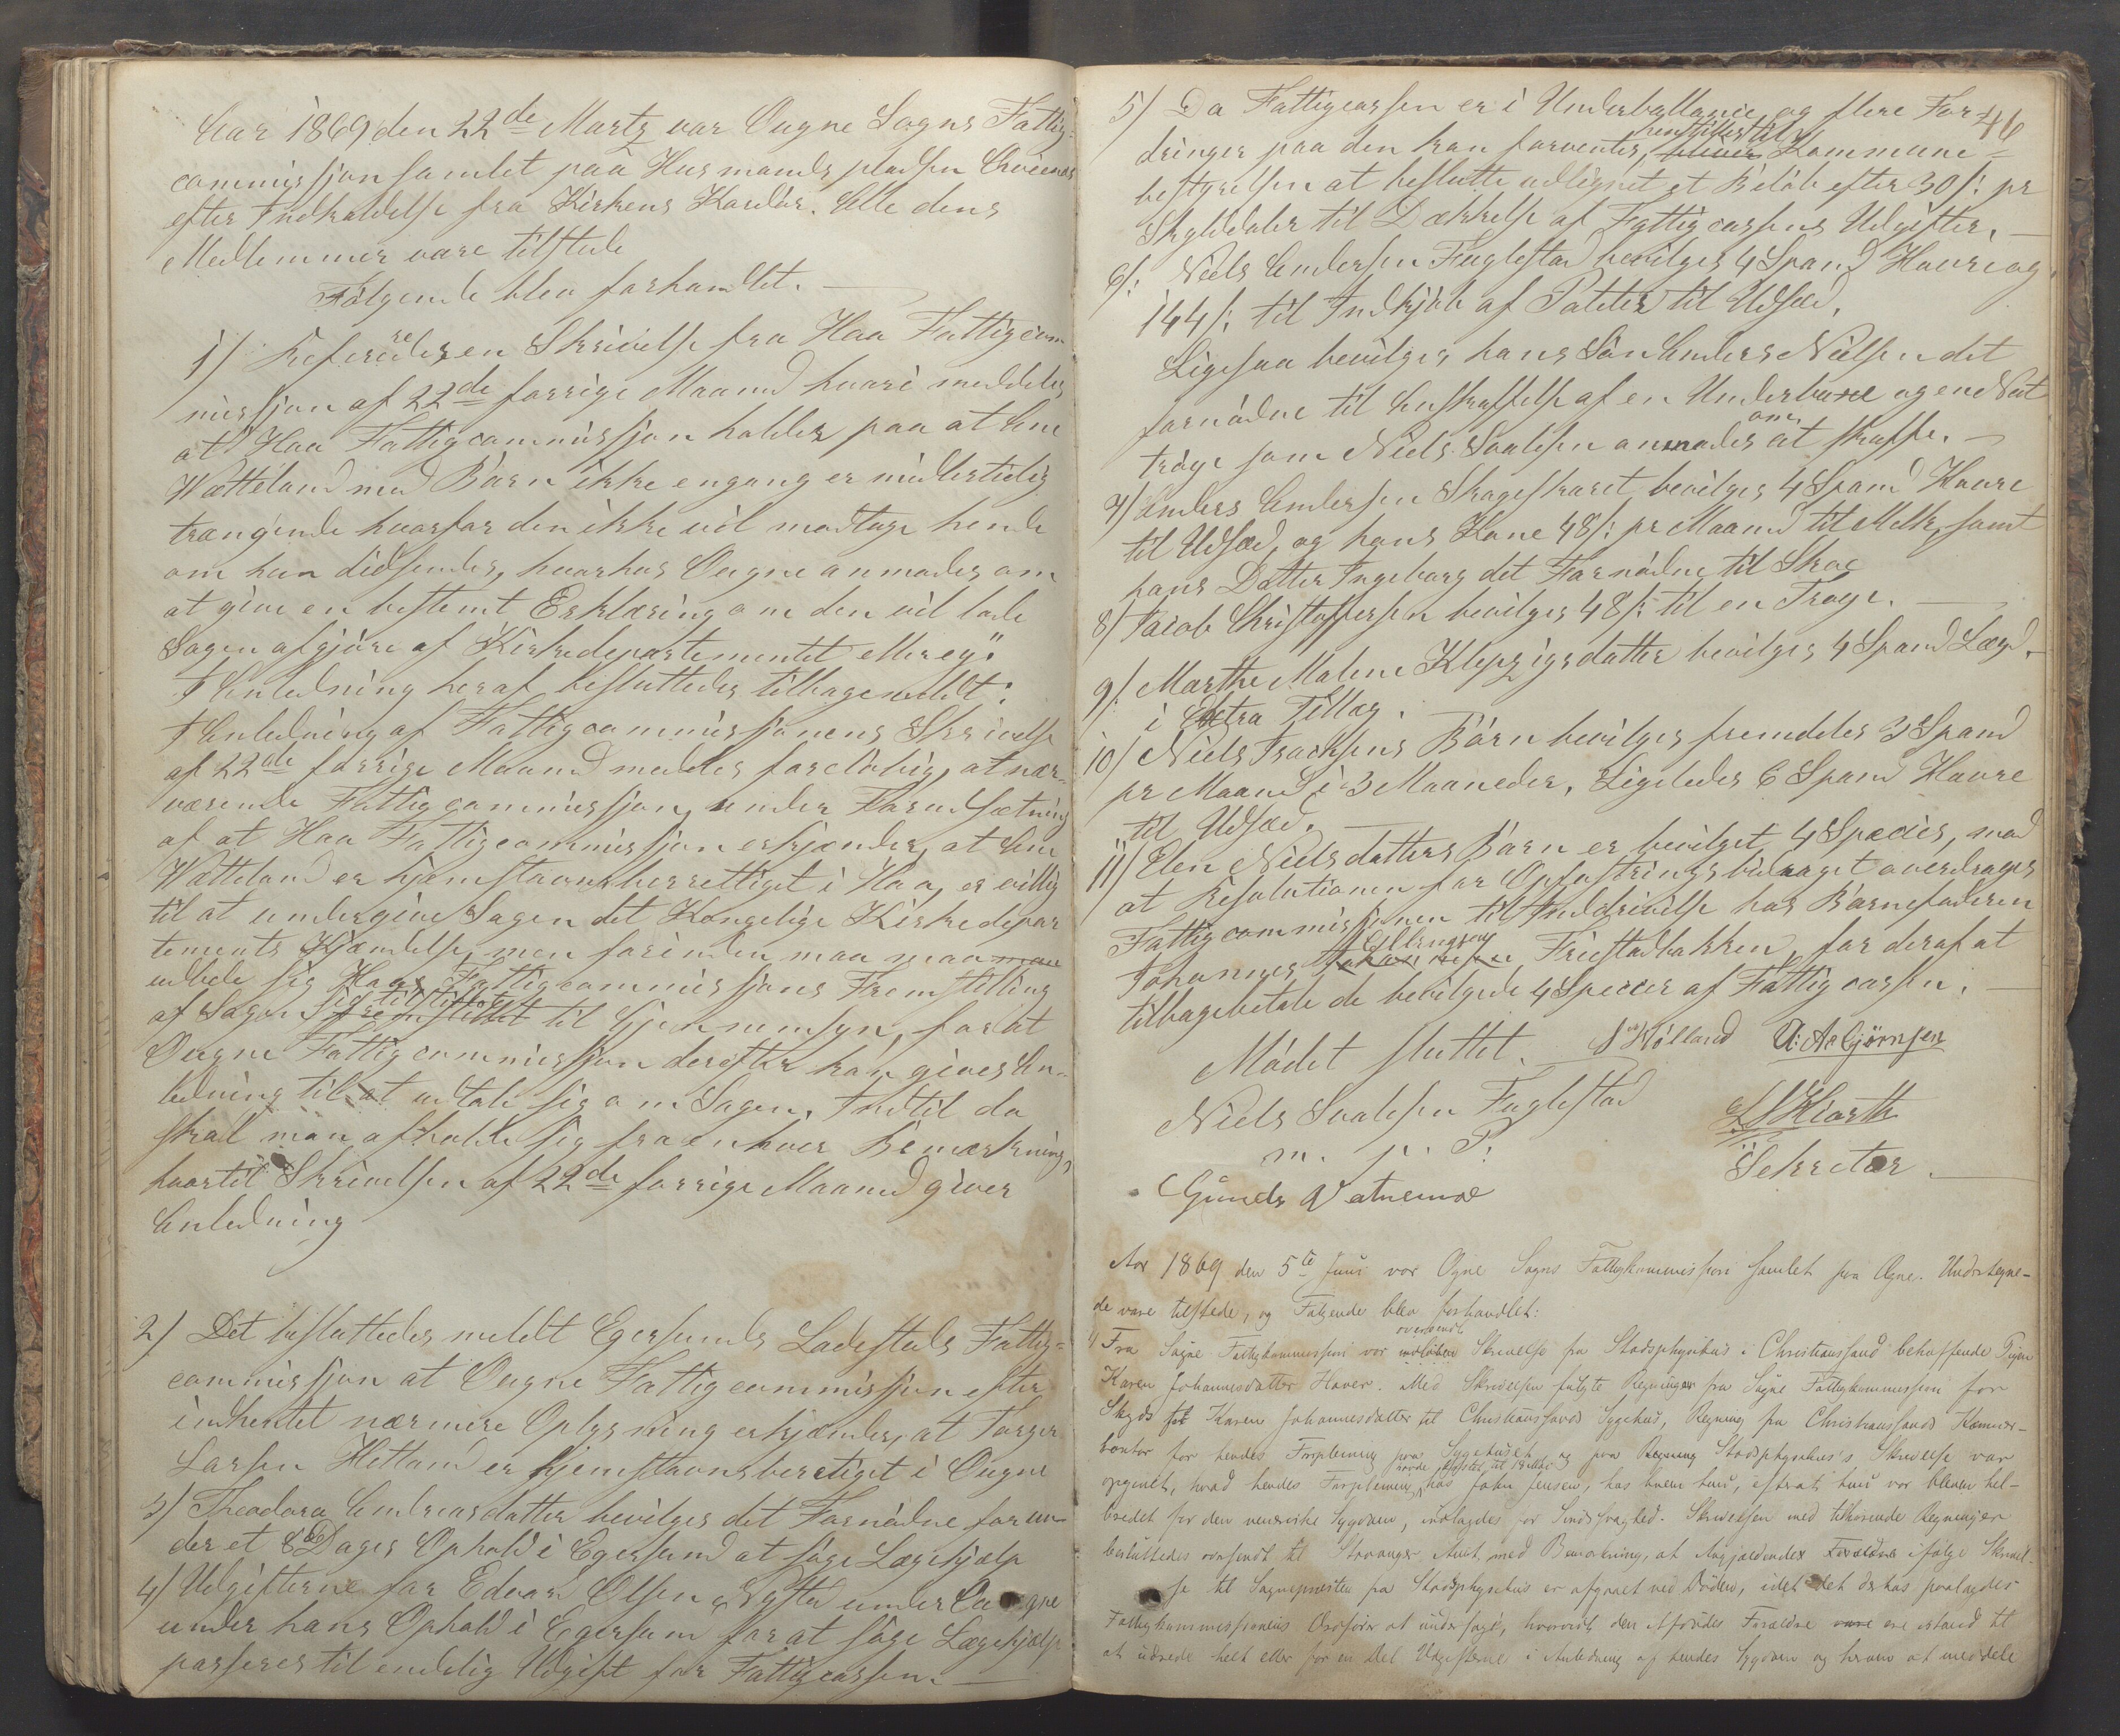 Aar 1869 den 22de Martz var Ougne Sogns Fattig-
commissjon samlet paa Husmandspladsen Qvienes
efter Indkaldelse fra Kirkens Kordör. Alle dens
Medlemmer vare tilstede
Følgende blev forhandlet.
1/ Refereredes en Skrivelse fra Haa Fattigcom
missjon af 22de forrige Maaned hvori meddeles
at Haa Fattigcommissjon holder paa at Ane
Wætteland med Børn ikke engang er midlertidig
trængende hvorfor den ikke vil modtage hende
om hun didsendes, hvorhos Ougne anmodes om
at give en bestemt Erklæring om den vil lade
Sagen afgjøre af Kirkedepartementet eller ey"
I Anledning heraf besluttedes tilbagemeldt:
I Anledning af Fattigcommissjonens Skrivelse
af 22de forrige Maaned meldes foreløbig, at nær-
værende Fattigcommissjon, under Forudsætning
af at Haa Fattigcommissjon erkjender, at Ane
Wætteland er hjemstavnsberrettiget i Haa, er villig
til at undergive Sagen det Kongelige Kirkedepar
tements Kjendelse, men forinden maa man
udbede sig Haas Fattigcommissjons Fremstilling
af Sagen sig tilstillet til Gjennemsyn, for at
Ougne Fattigcommissjon derefter kan gives An-
ledning til at udtale sig om Sagen. Indtil da
skal man afholde sig fra enhver Bemærkning,
hvortil Skrivelsen af 22de forrige Maaned giver
Anledning
2/ Det besluttedes meldt Egersunds Ladesteds Fattig-
commissjon at Ougne Fattigcommissjon efter
indhentet nærmere Oplysning erkjender, at Torger
Larsen Hetland er hjemstavnsberetiget i Ougne
3/ Theodora Andreasdatter bevilges det Fornødne for un-
der et 8te Dages Ophold i Egersund at søge Lægehjelp
4/ Udgifterne for Edvard Olsen under Ougne
under hans Ophold i Egersund for at søge Lægehjælp
passeres til endelig Udgift for Fattigcassen.
46
5/ Da Fattigcassen er i Underballance og flere For-
dringer paa den kan forventes, henstilles til Kommune-
bestyrelsen at beslutte udlignet et Beløb efter 30 s: pr
Skylddaler til Dækkelse af Fattigcassens Udgifter.
6/: Niels Andersen Fuglestad bevilges 4 Spand Havre og
144 s: til Indkjøb af Poteter til Udsæd.
Ligesaa bevilges hans Søn Anders Nielsen det
fornødne til Anskaffelse af en Underbuxe og en Nat
trøye som Niels Svalesen anmodes om at skaffe.
7/ Anders Andersen Skogeskaret bevilges 4 Spand Havre
til Udsæd, og hans Kone 48 s: pr Maaned til Melk, samt
hans Datter Ingeborg det Fornødne til Skoe
8/ Jacob Christoffersen bevilges 48 s: til en Trøye.
9/. Marthe Malene Klepzigsdatter bevilges 4 Spand Lægd.
i Extra Tillæg.
10/ Niels Isachsens Børn bevilges fremdeles 3 Spand
pr Maaned i 3 Maaneder, Ligeledes 6 Spand Havre
til Udsæd.
11/ Elen Nielsdatters Barn er bevilget 4 Species, mod
at Resolutionen for Opfostringsbidraget overdrages
Fattigcommissjonen til Inddrivelse hos Barnefaderen
Johannes Friestadbakken, for deraf at
tilbagebetale de bevilgede 4 Specier af Fattigcassen.
Mødet sluttet. Hølland A: Asbjörnsen
Niels Svalesen Fuglestad
m. p. P:
S Hiorth
Sekretær
Gunder Vatnemoe
Aar 1869 den 5te Juni var Ogne Sogns Fattigkommission samlet paa Ogne. Undertegne-
de vare tilstede, og Følgende blev forhandlet:
1/ Fra Søgne Fattigkommission var oversendt Skrivelse fra Stadsphysikus i Christianssand betræffende Pigen
Karen Johannesdatter Haver. Med Skrivelsen fulgte Regninger fra Søgne Fattigkommission for
Skyds for Karen Johannesdatter til Christianssands Sygehus, Regning fra Christianssands Kæmner-
kontor for hendes Forpleining paa Sygehuset, og paa Stadsphysikus's Skrivelse var
opgivet, hvad hendes Forpleining hos John Jensen, hos hvem hun, efterat hun var bleven hel-
bredet for den veneriske Sygdom, indlagdes for Sindssvaghed. Skrivelsen med tilhørende Regninger
besluttedes oversendt til Stavanger Amt, med Bemærkning, at Angjældendes Forældre ifølge Skrivel-
se til Sognepresten fra Stadsphysikus er afgaaet ved Døden, idet det derhos paalagdes
Fattigkommissionens Ordfører at undersøge, hvorvidt den Afdødes Forældre ere istand til
at udrede helt eller for en Del Udgifterne i Anledning af hendes Sygdom og herom at meddele